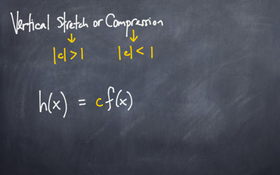 Vertical Stretch or Compression
|c| > 1 |c| < 1
h(x) = c f(x)